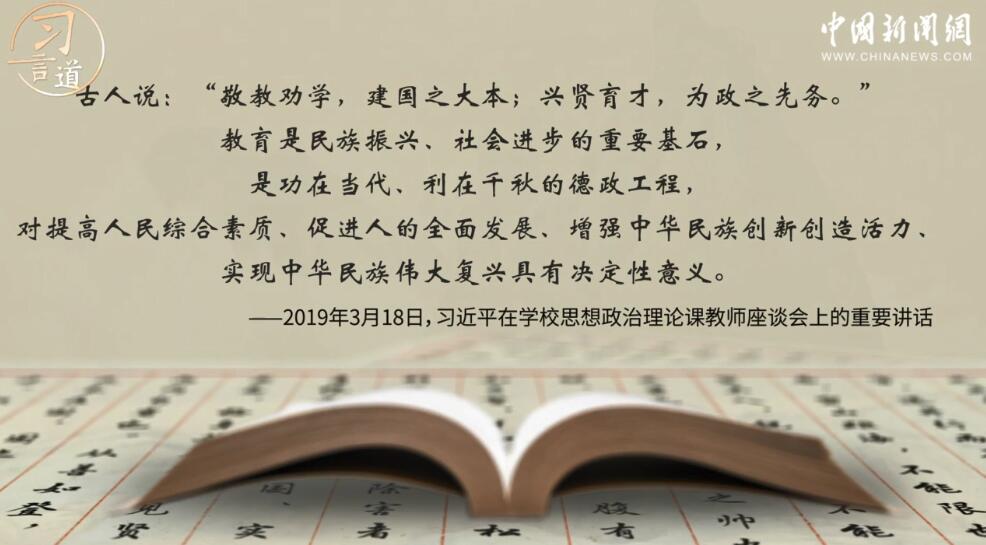 习言道
中國新聞網
WWW.CHINANEWS.COM
古人说：“敬教劝学，建国之大本；兴贤育才，为政之先务。”
教育是民族振兴、社会进步的重要基石，
是功在当代、利在千秋的德政工程，
对提高人民综合素质、促进人的全面发展、增强中华民族创新创造活力、
实现中华民族伟大复兴具有决定性意义。
——2019年3月18日，习近平在学校思想政治理论课教师座谈会上的重要讲话